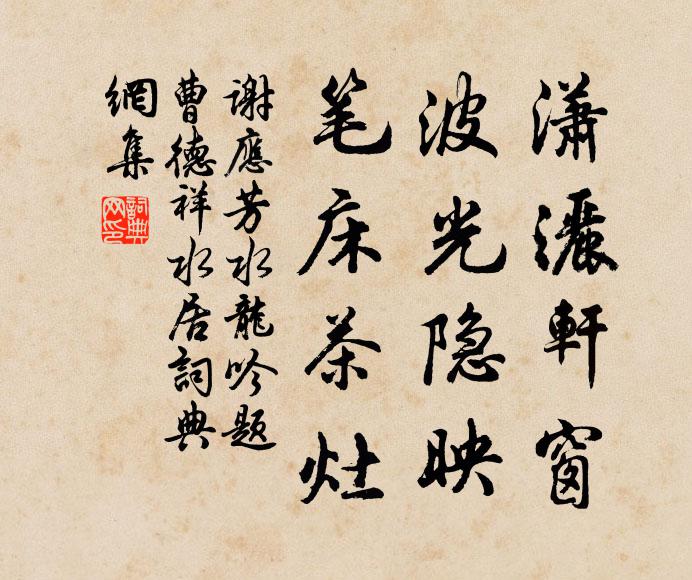 潇灑軒窗
波光隐映
笔床茶灶
谢應芳水龍吟题
曹德祥水居詞典
網集
詞典网印